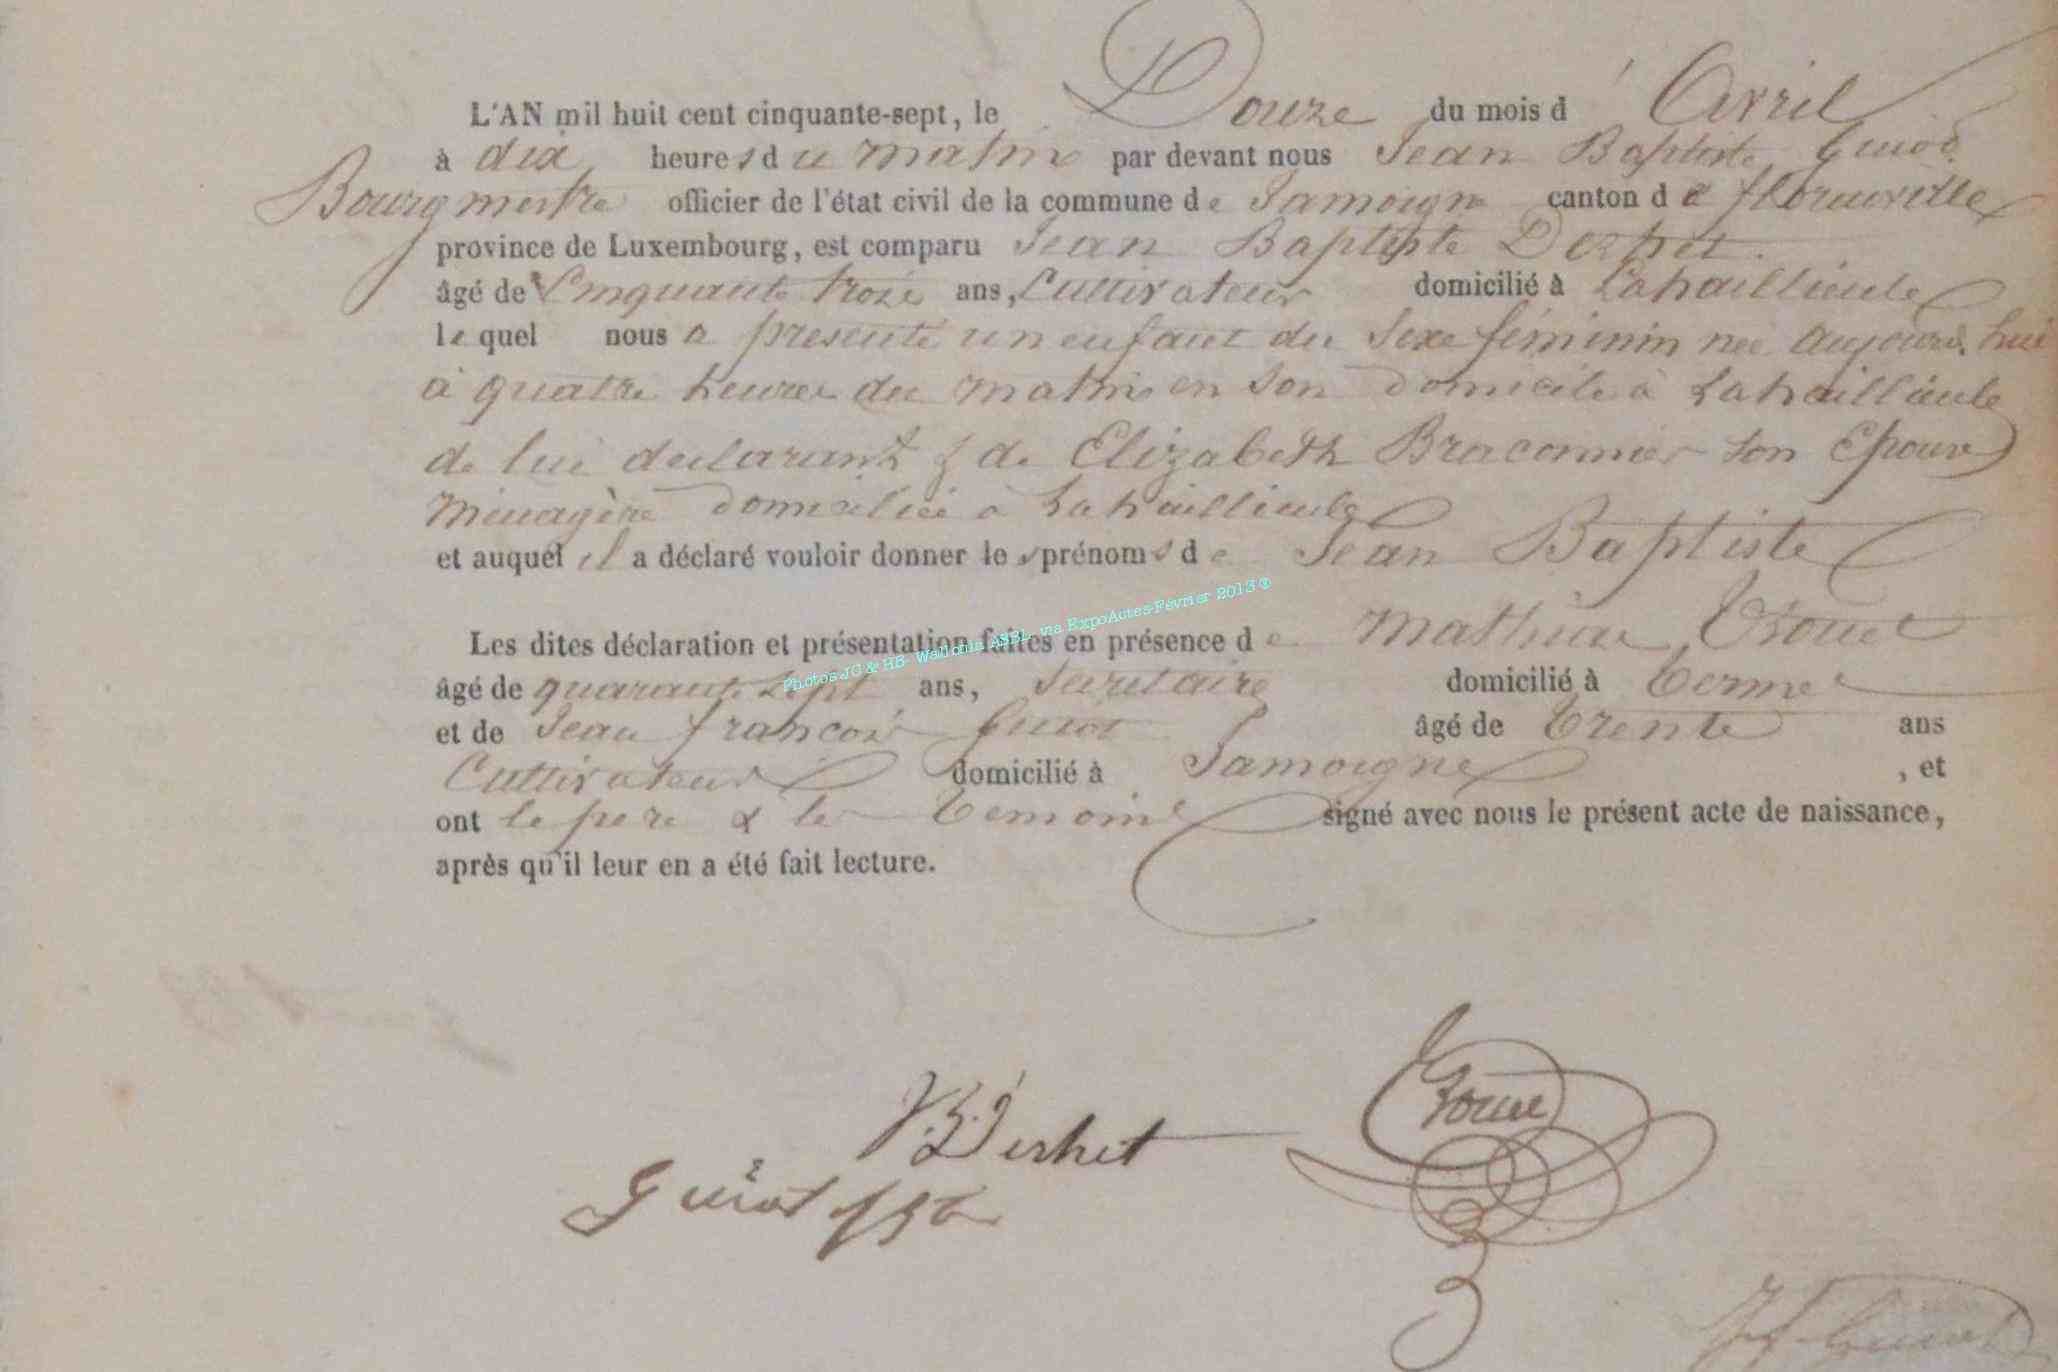 L'AN mil huit cent cinquante-sept, le Douze du mois d'Avril
à dix heures du matin par devant nous Jean Baptiste Guiot
Bourgmestre officier de l'état civil de la commune de Jamoigne canton de florenville
province de Luxembourg, est comparu Jean Baptiste Dershet
âgé de Cinquante trois ans, Cultivateur domicilié à Lahaillieule
lequel nous a presenté un enfant du Sexe féminin née aujourd'hui
à quatre heures du matin en son domicile à Lahaillieule
de lui declarant & de Elizabeth Braconnier son Epouse
Ménagère domiciliée à Lahaillieule
et auquel il a déclaré vouloir donner les prénoms de Jean Baptiste
Les dites déclaration et présentation faites en présence de Mathieu
âgé de quarante sept ans, Secretaire domicilié à Termes
et de Jean françois Guiot âgé de Trente ans
Cultivateur domicilié à Jamoigne, et
ont le pere & les Temoins signé avec nous le présent acte de naissance,
après qu'il leur en a été fait lecture.
Photos JG & HB- Wallonia ASBL via ExpoActes-Février 2013 ®
J.B. Dershet
Guiot
J f Guiot